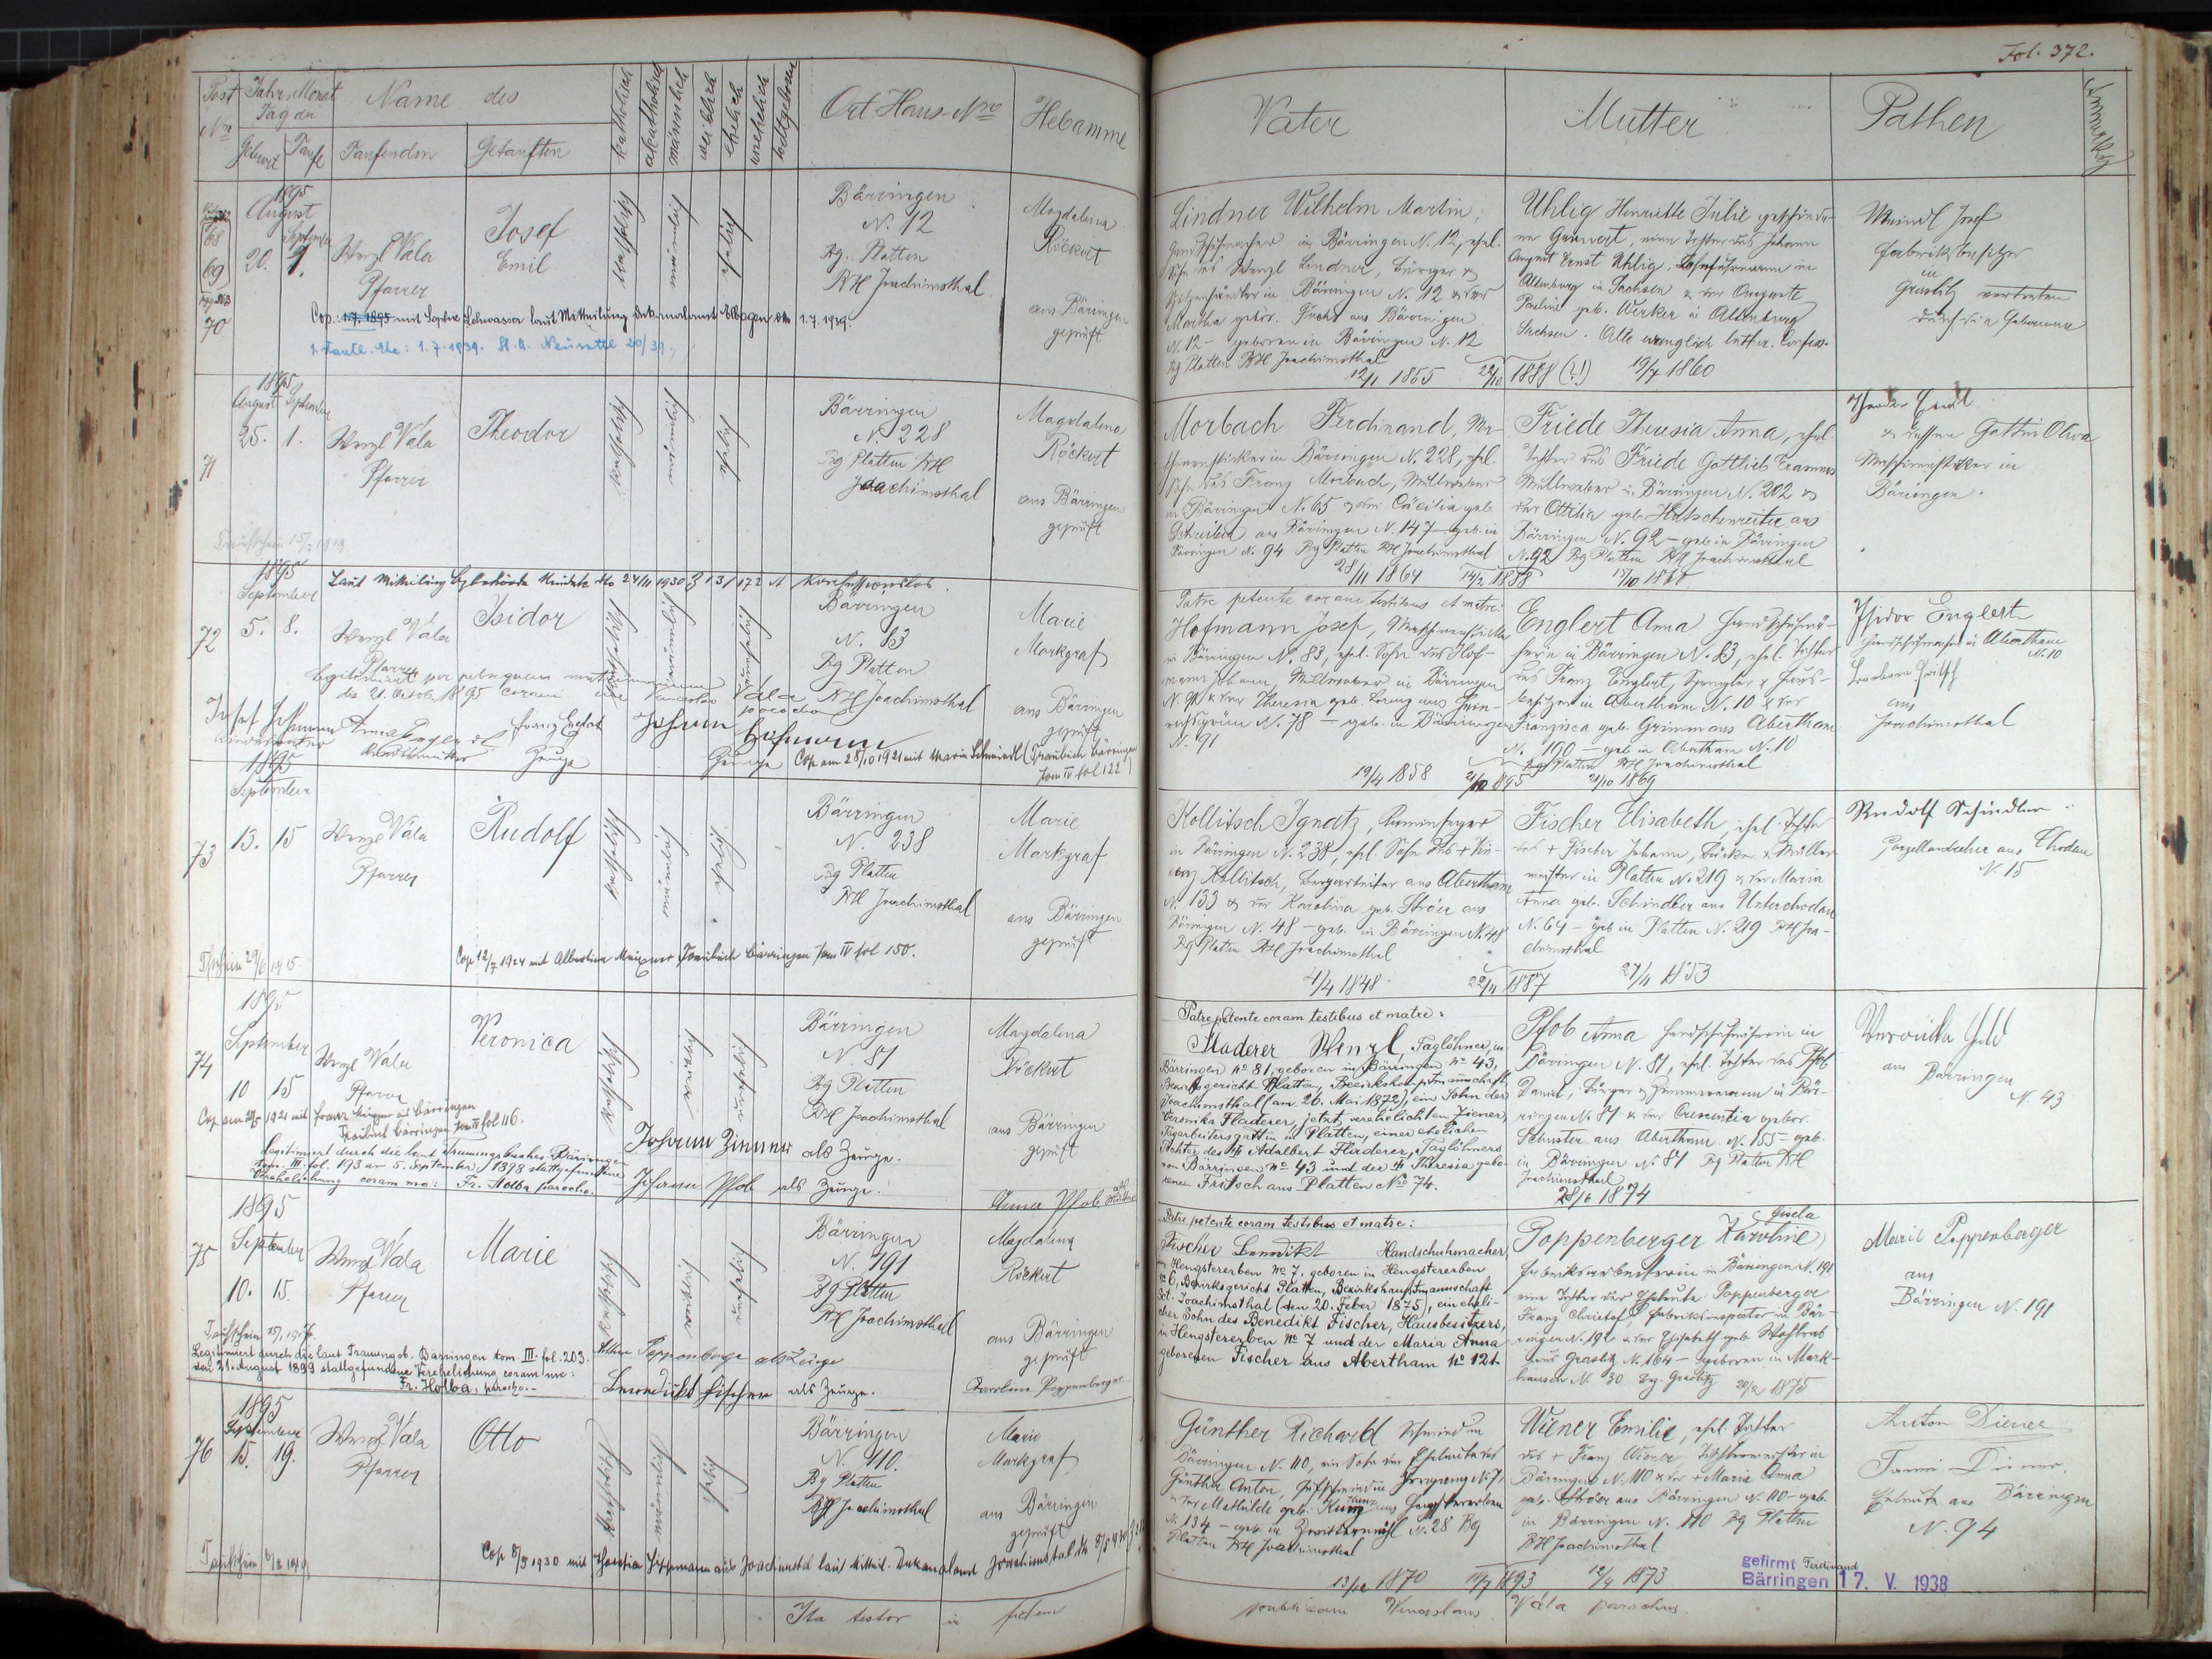 Fol. 372.
Post Nro
Jahr, Monat Tag der
Geburt
Taufe
Name des
Taufenden
Getauften
katholisch
akatholisch
männlich
weiblich
ehelich
unehelich
todtgeboren
Ort Haus-Nro
Hebamme
Vater
Mutter
Pathen
68
69
70
1895
August
September
20.
1.
Wenzl Vála
Pfarrer
Josef
Emil
katholisch
männlich
ehelich
Bärringen
N. 12
Bg. Platten
BH Joachimsthal
Magdalena
Röckert
aus Bärringen
geprüft
Lindner Wilhelm Martin,
Handschuhmacher in Bärringen N. 12, ehel.
Sohn des Wenzl Lindner, Bürger &
Spitzenhändler in Bärringen N. 12 & der
Martha gebor. Fuchs aus Bärringen
N. 12 - geboren in Bärringen N. 12
Bg Platten BH Joachimsthal
12/11 1855
22/10 1888 (?!)
Uhlig Henriette Julie geschiede-
ne Gannert, eine Tochter des Johann
August Ernst Uhlig, Lohnfuhrmann in
Altenburg in Sachsen & der Auguste
Pauline geb. Werker in Altenburg
Sachsen. Alle evanglisch luther. Confess.
19/7 1860
Meindl Josef
Fabriksbesitzer
in
Graslitz vertreten
durch die Hebamme
Cop.: 1.7.1895 mit Sophie Lohwasser laut Mitteilung Dekanalamt Elbogen dto 1.7.1939.
1. staatl. Ehe: 1.7.1939. St. A. Neusattl 20/39.
71
1895
August
September
25.
1.
Wenzl Vála
Pfarrer
Theodor
katholisch
männlich
ehelich
Bärringen
N. 228
Bg Platten BH
Joachimsthal
Magdalena
Röckert
aus Bärringen
geprüft
Morbach Ferdinand, Ma-
schinensticker in Bärringen N. 228, ehel.
Sohn des Franz Morbach, Müllweber
in Bärringen N. 65 & der Cäcilia geb.
aus Bärringen N. 147 - geb. in
Bärringen N. 94 Bg Platten BH Joachimsthal
28/11 1864
14/2 1888
Friede Theresia Anna, ehel.
Tochter des Friede Gottlieb Erasmus
Müllweber in Bärringen N. 202 &
der Ottilia geb. Hutschenreiter aus
Bärringen N. 92 - geb in Bärringen
N. 92 Bg Platten BH Joachimsthal
& dessen Gattin Olwa
Maschinensticker in
Bärringen.
Taufschein 15/2 1919
72
1895
September
Laut Mitteilung Bzbehörde Neudek dto 24/11 1930 Z 131/172 A konfessionslos.
5.
8.
Wenzl Vála
Pfarrer
Isidor
katholisch
männlich
unehelich
Bärringen
N. 83
Bg Platten
BH Joachimsthal
Marie
Markgraf
aus Bärringen
geprüft
Patre petente coram testibus et matre:
Hofmann Josef, Maschinensticker
in Bärringen N. 83, ehel. Sohn des Hof-
mann Johann, Müllweber in Bärringen
N. 91 & der Theresia geb. Lorenz aus Hein-
richsgrün N. 78 - geb. in Bärringen
N. 91
19/4 1858
21/10 1895
Englert Anna Handschuhmä-
herin in Bärringen N. 83, ehel. Tochter
des Franz Englert, Spengler & Haus-
besitzer in Abertham N. 10 & der
Franzisca geb. Grimm aus Abertham
N. 190 - geb in Abertham N. 10
Bg Platten BH Joachimsthal
21/10 1869
Isidor Englert
Handschuhmacher in Abertham
N. 10
Barbara Fritsch
aus
Joachimsthal
Legitimirt per subsequens matrimonium
die 21. October 1895 coram me Venceslao Vála
parocho
Josef Hofmann
Kindesvater
Anna Englert
Kindesmutter
Franz Englert
Zeuge
Johann Hofmann
Zeuge
Cop am 28/10 1921 mit Maria Schmiedl (Traubuch Bärringen
Tom IV fol 122)
73
1895
September
13.
15
Wenzl Vála
Pfarrer
Rudolf
katholisch
männlich
ehelich
Bärringen
N. 238
Bg Platten
BH Joachimsthal
Marie
Markgraf
aus Bärringen
geprüft
Kollitsch Ignatz, Kaminfeger
in Bärringen N. 238, ehel. Sohn des + Vin-
cenz Kollitsch, Bergarbeiter aus Abertham
N. 133 & der Karolina geb. Ströer aus
Bärringen N. 48 - geb. in Bärringen N. 48
Bg Platten BH Joachimsthal
4/4 1848
22/11 1887
Fischer Elisabeth, ehel. Tochter
des + Fischer Johann, Bäcker & Müller
meister in Platten N. 219 & der Maria
Anna geb. Schindler aus Unterchodau
N. 64 - geb in Platten N. 219 BH Joa-
chimsthal
27/11 1853
Rudolf Schindler
Porzellandreher aus Chodau
N. 15
Tfschein 29/6 1915.
Cop 12/7 1924 mit Albertine Meixner Traubuch Bärringen Tom IV fol 150.
74
1895
September
10
15
Wenzl Vála
Pfarrer
Veronica
katholisch
unehelich
Bärringen
N. 81
Bg Platten
BH Joachimsthal
Magdalena
Röckert
aus Bärringen
geprüft
Patre petente coram testibus et matre:
Fladerer Wenzl, Taglöhner, in
Bärringen No 81, geboren in Bärringen No 43,
Bezirksgericht Platten, Bezirkshauptmannschaft
Joachimsthal (am 26. Mai 1872), ein Sohn der
Veronika Fladerer, jetzt verehelichten Ziener,
Tagarbeitersgattin in Platten, einer ehelichen
Tochter des + Adalbert Fladerer, Taglöhners
von Bärringen No 43 und der + Theresia gebo-
renen Fritsch aus Platten No 74.
Pfob Anna Handschuhnäherin in
Bärringen N. 81, ehel. Tochter des Pfob
Daniel, Bürger & Zimmermann in Bär-
ringen N. 81 & der Crescentia gebor.
Schuster aus Abertham N. 155 - geb.
in Bärringen N. 81 Bg Platten BH
Joachimsthal
28/6 1874
Veronika Held
aus Bärringen
N. 43
Traubuch Bärringen Tom IV fol 116.
Legitimiert durch die laut Trauungsbuches Bärringen
tom. III. fol. 193 am 5. September 1898 stattgefundene
Verehelichung coram me: Fr. Holba parocho.
Johann Zimmer als Zeuge.
Johann Pfob als Zeuge.
Anna Pfob als Mutter
75
1895
September
10.
15.
Wenzl Vála
Pfarrer
Marie
katholisch
weiblich
unehelich
Bärringen
N. 191
Bg Platten
BH Joachimsthal
Magdalena
Röckert
aus Bärringen
geprüft
Patre petente coram testibus et matre:
Fischer Benedikt Handschuhmacher
in Hengstererben No 7, geboren in Hengstererben
No 6, Bezirksgericht Platten, Bezirkshauptmannschaft
Sct. Joachimsthal (den 20. Feber 1875), ein eheli-
cher Sohn des Benedikt Fischer, Hausbesitzers,
in Hengstererben No 7 und der Maria Anna
geborenen Fischer aus Abertham No 121.
Gisela
Poppenberger Karoline,
Fabriksarbeiterin in Bärringen N. 191
eine Tochter der Eheleute Poppenberger
Franz Christof Fabriksinspector in Bär-
ringen N. 191 & der Elisabeth geb.
aus Graslitz N. 164 - geboren in Mark-
hausen N. 30 Bg. Graslitz 20/2 1875
Marie Poppenberger
aus
Bärringen N. 191
Legitimiert durch die laut Trauungsb. Bärringen tom. III. fol. 203.
den 21. August 1899 stattgefundene Verehelichung coram me:
Fr. Holba, parocho.
Poppenberger als Zeuge
Benedikt Fischer als Zeuge.
Karoline Poppenberger
76
1895
September
15.
19.
Wenzl Vála
Pfarrer
Otto
katholisch
männlich
ehelich
Bärringen
N. 110.
Bg Platten
BH Joachimsthal
Marie
Markgraf
aus Bärringen
geprüft
Günther Richard Schmied in
Bärringen N. 110, ein Sohn der Eheleute des
Günther Anton, Hufschmied in N. 7,
& der Mathilde geb. Kunz aus Hengstererben
N. 134 - geb. in N. 28 Bg
Platten BH Joachimsthal
13/12 1870
10/7 1893
Wiener Emilie, ehel. Tochter
des + Franz Wiener, Tischlermeister in
Bärringen N. 110 & der + Marie Anna
geb. Ströer aus Bärringen N. 110 - geb.
in Bärringen N. 110 Bg Platten
BH Joachimsthal
12/4 1873
Anton Diener
Fanni Diener,
Eheleute aus Bärringen
N. 94
gefirmt Ferdinand
Bärringen 17. V. 1938
Cop 8/5 1930 mit Theresia Hissmann aus Joachimstal laut Mitteil. Dekanalamt Joachimstal dto 8/5 1930
Ita testor in fidem
publicam Wenceslaus Vála parochus.